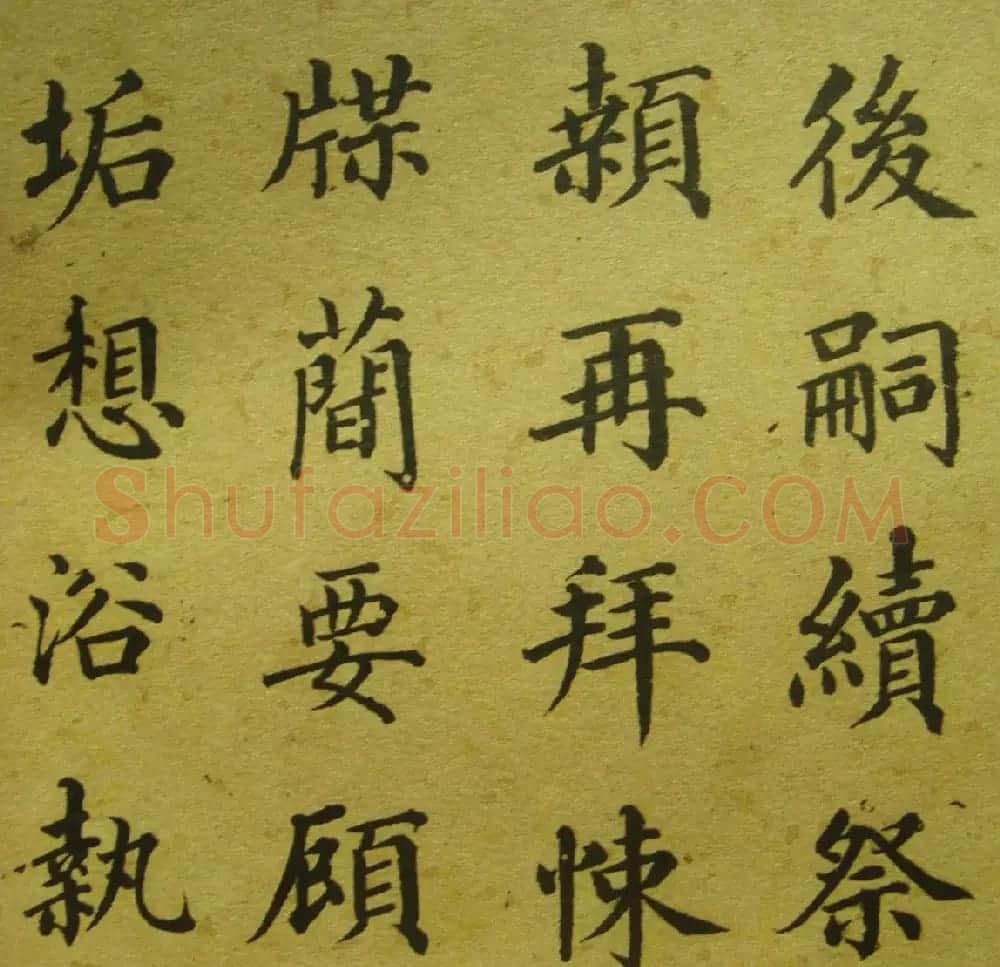 後嗣續祭
顙再拜悚
牒簡要顧
垢想浴執
Shufaziliao.COM